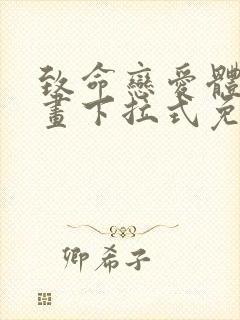 致命戀愛體
畫下拉式免
卿希子